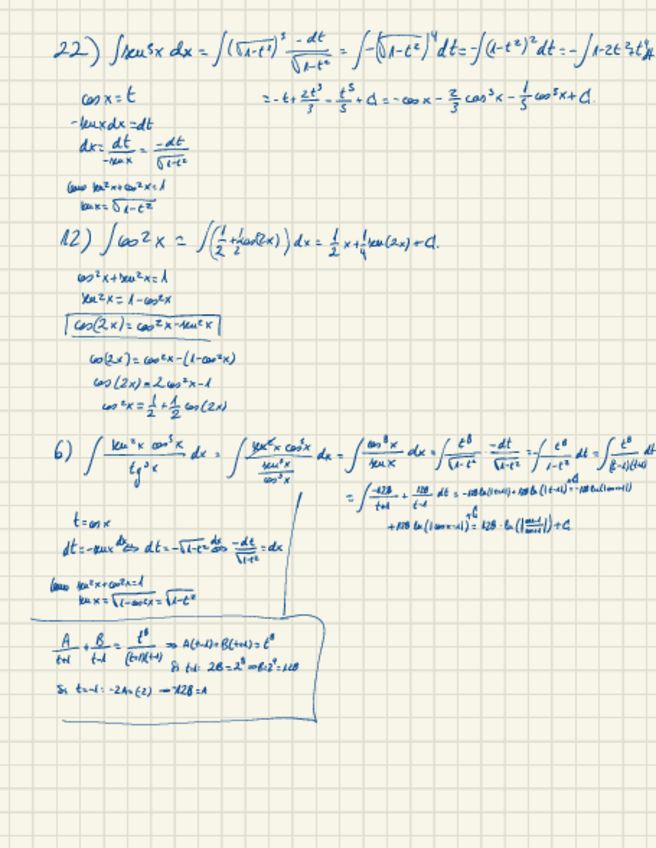 22) ∫sen⁵x dx = ∫(√1-t²)⁵ -dt/√1-t² = ∫-(√1-t²)⁴ dt = -∫(1-t²)² dt = -∫1-2t²+t⁴ dt
= -t + 2t³/3 - t⁵/5 + C = -cos x - 2/3 cos³x - 1/5 cos⁵x + C
cos x = t
-sen x dx = dt
dx = dt/-sen x = -dt/√1-t²
como sen²x+cos²x=1
sen x = √1-t²
12) ∫cos²x = ∫(1/2 + 1/2 cos(2x)) dx = 1/2 x + 1/4 sen(2x) + C.
cos²x+sen²x=1
sen²x = 1-cos²x
cos(2x) = cos²x-sen²x
cos(2x) = cos²x-(1-cos²x)
cos(2x) = 2cos²x-1
cos²x = 1/2 + 1/2 cos(2x)
6) ∫ cos⁵x / tg³x dx = ∫ cos⁵x / (sen³x / cos³x) dx = ∫ cos⁸x / sen x dx = ∫ t⁸/√1-t² · -dt/√1-t² = -∫ t⁸/1-t² dt = ∫ t⁸/(t-1)(t+1) dt
= ∫ -128/t+1 + 128/t-1 dt
t = cos x
dt = -sen x dx ⇔ dt = -√1-t² dx ⇔ -dt/√1-t² = dx
como sen²x+cos²x=1
sen x = √1-cos²x = √1-t²
A/t+1 + B/t-1 = t⁸/(t+1)(t-1) ⇒ A(t-1)+B(t+1) = t⁸
Si t=1: 2B=2⁸ ⇒ B=2⁷=128
Si t=-1: -2A=(2) → -128=A